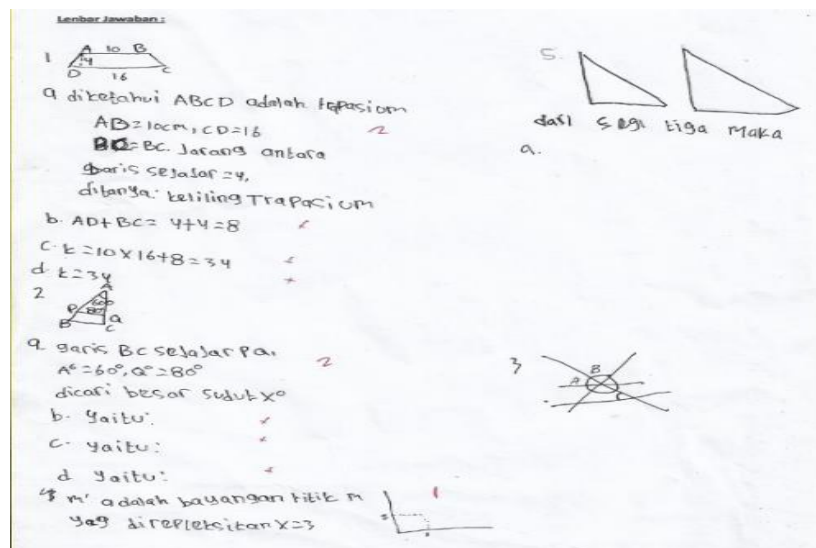 Lenbar Jawaban :
1 A 10 B
4
D 16 C
a diketahui ABCD adalah trapasiom
AB=10cm, CD=16
=BC. Jarang antara
garis sejajar =4,
ditanya: keliling Trapasiom
2
b. AD+BC= 4+4=8
C. k =10X16+8=34
d. k=34
2 A
60°
P 80° Q
B C
a garis BC sejajar PQ,
A°=60°, Q°=80°
dicari besar sudut X°
2
b. Yaitu:
C. Yaitu:
d Yaitu:
4 m' adalah bayangan titik m
yag direpleksikan X=3
1
5.
dari segi tiga maka
a.
3
A B
C